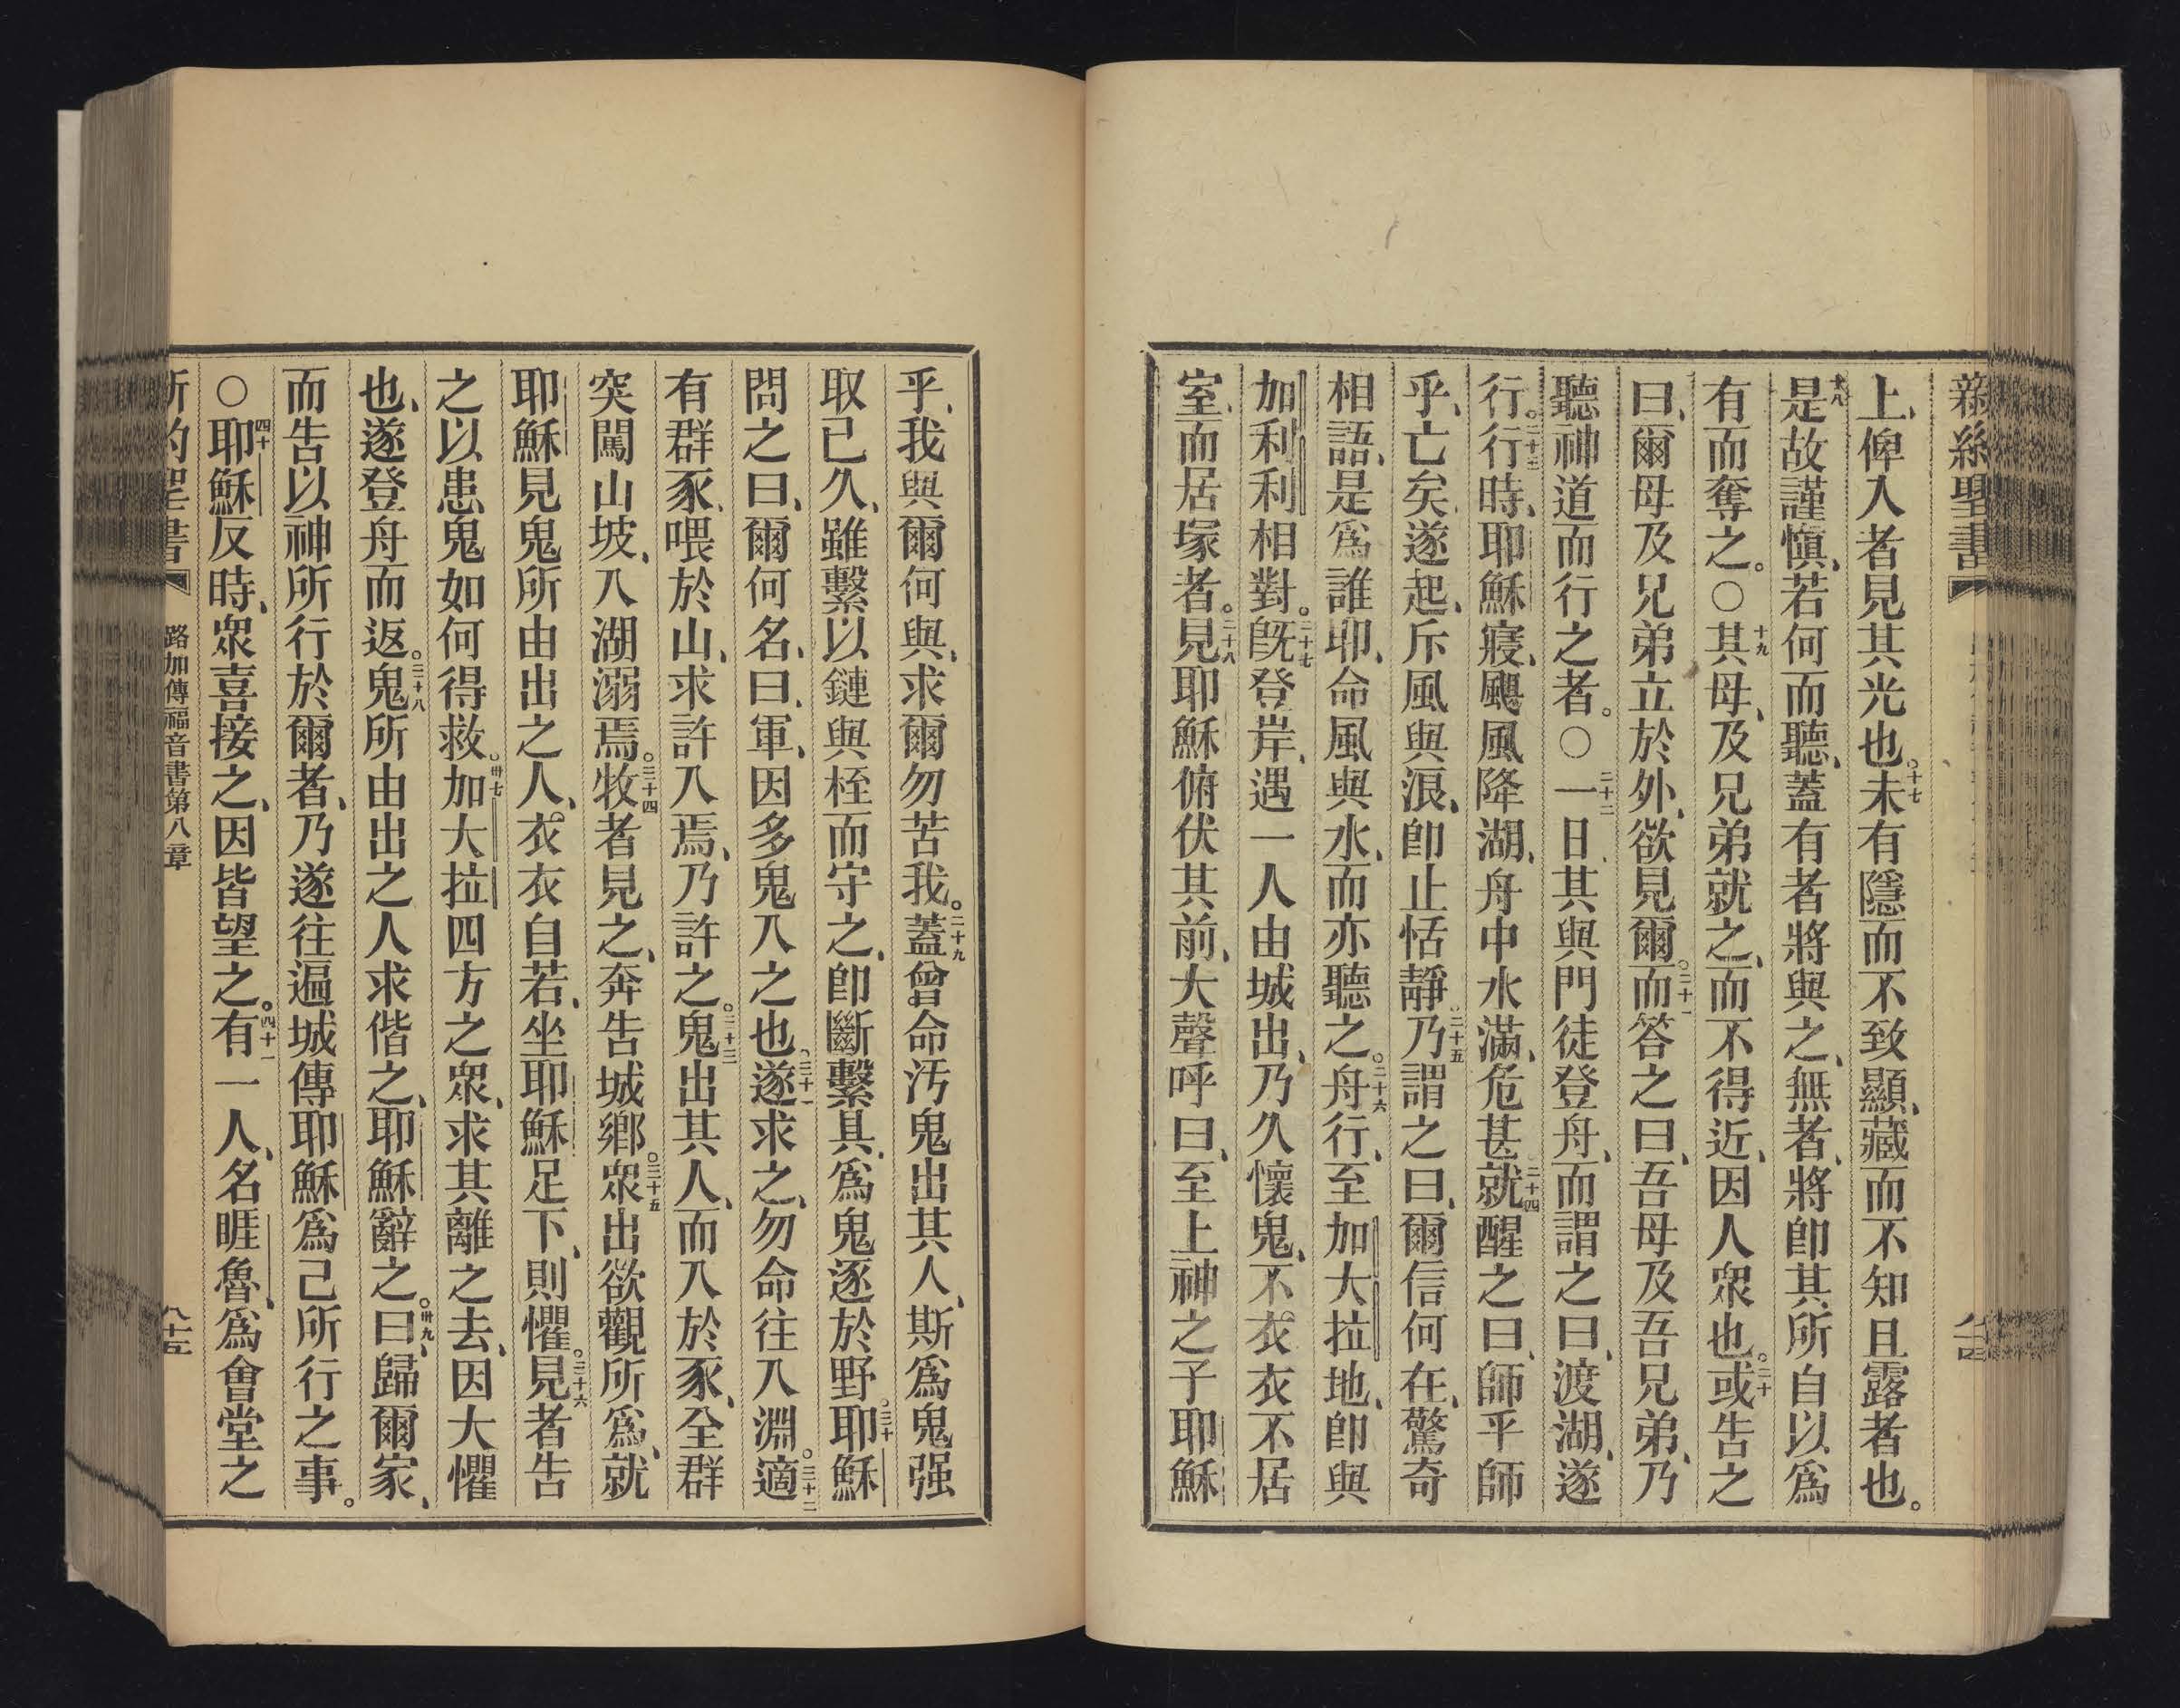 新約聖書
上、俾入者見其光也。十七未有隱而不致顯、藏而不知且露者也。
十八是故謹愼、若何而聽、蓋有者將與之、無者、將卽其所自以爲
有而奪之。○十九其母、及兄弟就之、而不得近、因人眾也。二十或告之
曰、爾母及兄弟立於外、欲見爾。二十一而答之曰、吾母及吾兄弟、乃
聽神道而行之者。○二十二一日、其與門徒登舟、而謂之曰、渡湖、遂
行。二十三行時、耶穌寢、颶風降湖、舟中水滿、危甚、二十四就醒之曰、師乎師
乎、亡矣、遂起、斥風與浪、卽止恬靜。二十五乃謂之曰、爾信何在、驚奇
相語、是爲誰耶、命風與水、而亦聽之。二十六舟行、至加大拉地、卽與
加利利相對。二十七旣登岸、遇一人由城出、乃久懷鬼、不衣衣、不居
室、而居塚者。二十八見耶穌俯伏其前、大聲呼曰、至上神之子耶穌
乎、我與爾何與、求爾勿苦我。二十九蓋曾命汚鬼出其人、斯爲鬼强
取已久、雖繫以鏈與桎而守之、卽斷繫具、爲鬼逐於野。三十耶穌
問之曰、爾何名、曰、軍、因多鬼入之也。三十一遂求之、勿命往入淵。三十二適
有群豕、喂於山、求許入焉、乃許之。三十三鬼出其人、而入於豕、全群
突闖山坡、入湖溺焉。三十四牧者見之、奔告城鄉。三十五眾出欲觀所爲、就
耶穌見鬼所由出之人、衣衣自若、坐耶穌足下、則懼。三十六見者告
之以患鬼如何得救。卅七加大拉四方之眾、求其離之去、因大懼
也、遂登舟而返。三十八鬼所由出之人求偕之、耶穌辭之。卅九曰、歸爾家、
而告以神所行於爾者、乃遂往遍城傳耶穌爲己所行之事。
○四十耶穌反時、眾喜接之、因皆望之。四十一有一人、名睚魯、爲會堂之
路加傳福音書第八章
八十五